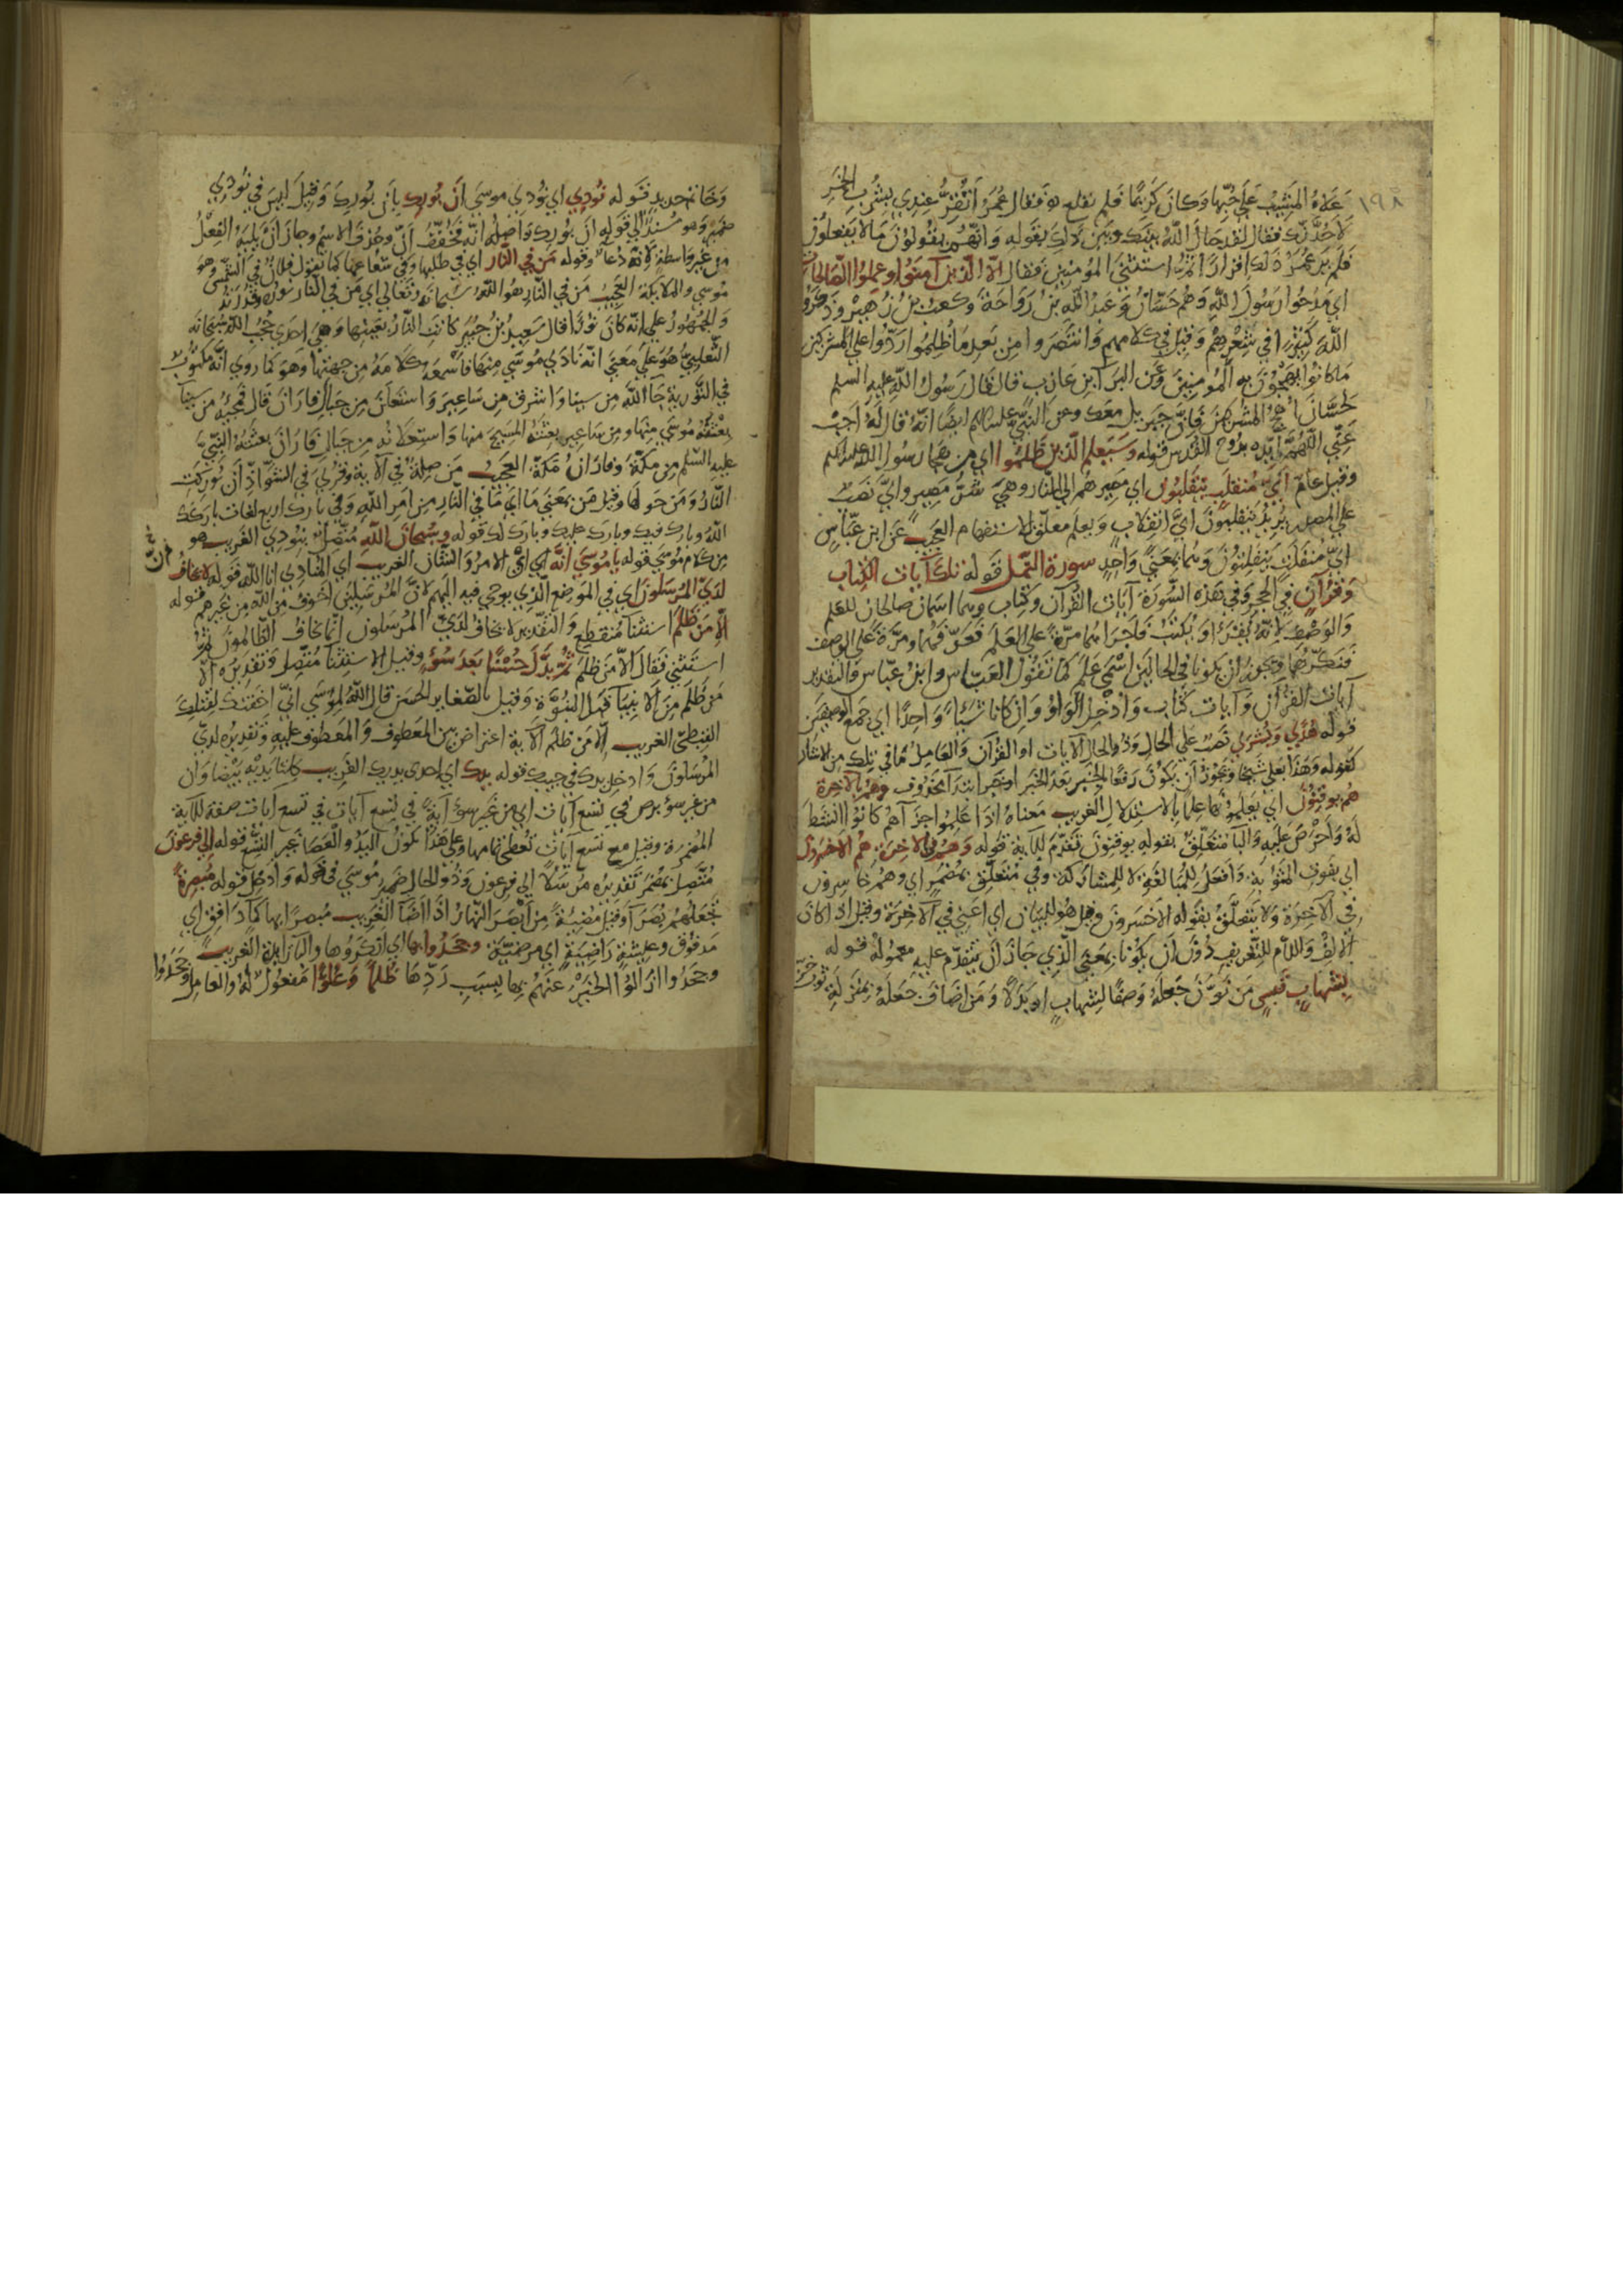 ١٩٨
علاه المشيب على حبها وكان كريما فلم يقلع فقال عمر أتقر عندي بشرب الخمر
لأحدنك فقال لقد حال الله بينك وبين ذلك بقوله وانهم يقولون مالا يفعلون
فلم ير عمر ذلك اقرارا ثم استثنى المؤمنين فقال الا الذين آمنوا وعملوا الصالحات
اي مدحوا رسول الله وهم حسان وعبد الله بن رواحة وكعب بن زهير وذكروا
الله كثيرا في شعرهم وقيل في كلامهم وانتصروا من بعد ما ظلموا ردوا على المشركين
ما كانوا يهجون به المؤمنين وعن البرآ بن عازب قال قال رسول الله عليه السلم
لحسان اهج المشركين فان جبريل معك وعن النبي عليه السلم ايضا انه قال له اجب
عني اللهم ايده بروح القدس قوله وسيعلم الذين ظلموا اي من هجا رسول الله عليه السلم
وقيل عام اي منقلب ينقلبون اي مصيرهم الى النار وهي شر مصير واي نصب
على المصدر يريد ينقلبون اي انقلاب ويعلم معلق للاستفهام العجيب عن ابن عباس
اي منفلت ينفلتون وهما بمعنى واحد سورة النمل قوله تلك آيات الكتاب
وقرآن في الحجر وفي هذه السورة آيات القرآن وكتاب وهما اسمان صالحان للعلم
والوصف لانه يقرأ او يكتب فاجراهما مرة على العلم فعرفهما ومرة على الوصف
فنكرهما ويجوز ان يكونا في الحالين اسمي علم كما تقول العباس وابن عباس والتقدير
آيات القرآن وآيات كتاب وادخل الواو وان كانا شيئا واحدا اي جمع الوصفين
قوله هدى وبشرى نصب على الحال وذو الحال الآيات او القرآن والعامل ما في تلك من الاشارة
كقوله وهذا بعلي شيخا ويجوز ان يكون رفعا لخبر بعد الخبر او خبر ابتدآ محذوف وهم بالآخرة
هم يوقنون اي يعلمونها علما بالاستدلال الغريب معناه اذا علموا جزآهم كانوا انشط
له واحرص عليه والبآ متعلق بقوله يوقنون تقدم للآية قوله وهم في الآخرة هم الاخسرون
اي بفوت المثوبة وافعل للمبالغة لا للمشاركة وفي متعلق بمضمر اي وهم خاسرون
في الآخرة ولا يتعلق بقوله الاخسرون وقيل هو للبيان اي اعني في الآخرة وقيل اذا كان
الالف واللام للتعريف دون ان يكونا بمعنى الذي جاز ان يتقدم عليه معموله قوله
بشهاب قبس من نون جعله وصفا لشهاب او بدلا ومن اضاف جعله بمنزلة ثوب خز
وخاتم حديد قوله نودي اي نودي موسى أن بورك بأن بورك وقيل ليس في نودي
ضمير وهو مسند الى قوله ان بورك واصله انه فخفف ان وحذف الاسم وجاز ان يليه الفعل
من غير واسطة لانه دعآ وقوله من في النار اي في طلبها وفي شعاعها كما تقول فلان في الشمس وهو
موسى والملائكة العجيب من في النار هو الله سبحانه وتعالى اي من في النار نوره وقدرته
والجمهور على انه كان نورا قال سعيد بن جبير كانت النار بعينها وهي احدى حجب الله سبحانه
الثعلبي هو على معنى انه نادى موسى منها فاسمعه كلامه من جهتها وهو كما روي انه مكتوب
في التورية جآ الله من سينا واشرق من ساعير واستعلن من جبال فاران قال فمجيئه من سينآ
بعثته موسى منها ومن ساعير بعثته المسيح منها واستعلانه من جبال فاران بعثته النبي
عليه السلم من مكة وفاران مكة العجيب من صلة في الآية وقرئ في الشواذ ان بوركت
النار ومن حولها وقيل من بمعنى ما اي ما في النار من امر الله وفي بارك اربع لغات باركك
الله وبارك فيك وبارك عليك وبارك لك قوله وسبحان الله متصل بنودي الغريب هو
من كلام موسى قوله يا موسى انه اي ان الامر والشأن الغريب اي المنادي انا الله قوله لا يخاف
لدي المرسلون اي في الموضع الذي يوحي فيه اليهم لان المرسلين اخوف من الله من غيرهم قوله
الا من ظلم استثنآ منقطع والتقدير لا يخاف لدي المرسلون انما يخاف الظالمون ثم
استثنى فقال الا من ظلم ثم بدل حسنا بعد سوء وقيل الاستثنآ متصل وتقديره الا
من ظلم من الانبيآ قبل النبوة وقيل بالصغاير الحسن قال الله لموسى اني اخفتك لقتلك
القبطي الغريب الا من ظلم الآية اعتراض بين المعطوف والمعطوف عليه وتقديره لدي
المرسلون وادخل يدك في جيبك قوله يدك اي احدى يديك الغريب كلتا يديه بيضاوان
من غير سوء برص في تسع آيات اي من غير سوء آية في تسع آيات في تسع آيات صفة للآية
المضمرة وقيل مع تسع آيات تعطى تمامها وعلى هذا تكون اليد والعصا غير التسع قوله الى فرعون
متصل بمضمر تقديره مرسلا الى فرعون وذو الحال ضمير موسى في قوله وادخل قوله مبصرة
تجعلهم بصرآ وقيل مضيئة من ابصر النهار اذا اضآ الغريب مبصرا بها كمآ دافق اي
مدفوق وعيشة راضية اي مرضية وجحدوا بها اي انكروها والبآ زايدة الغريب
وجحدوا ازالوا الخبر عنهم بها بسبب ردها ظلما وعلوا مفعول له والعامل وجحدوا